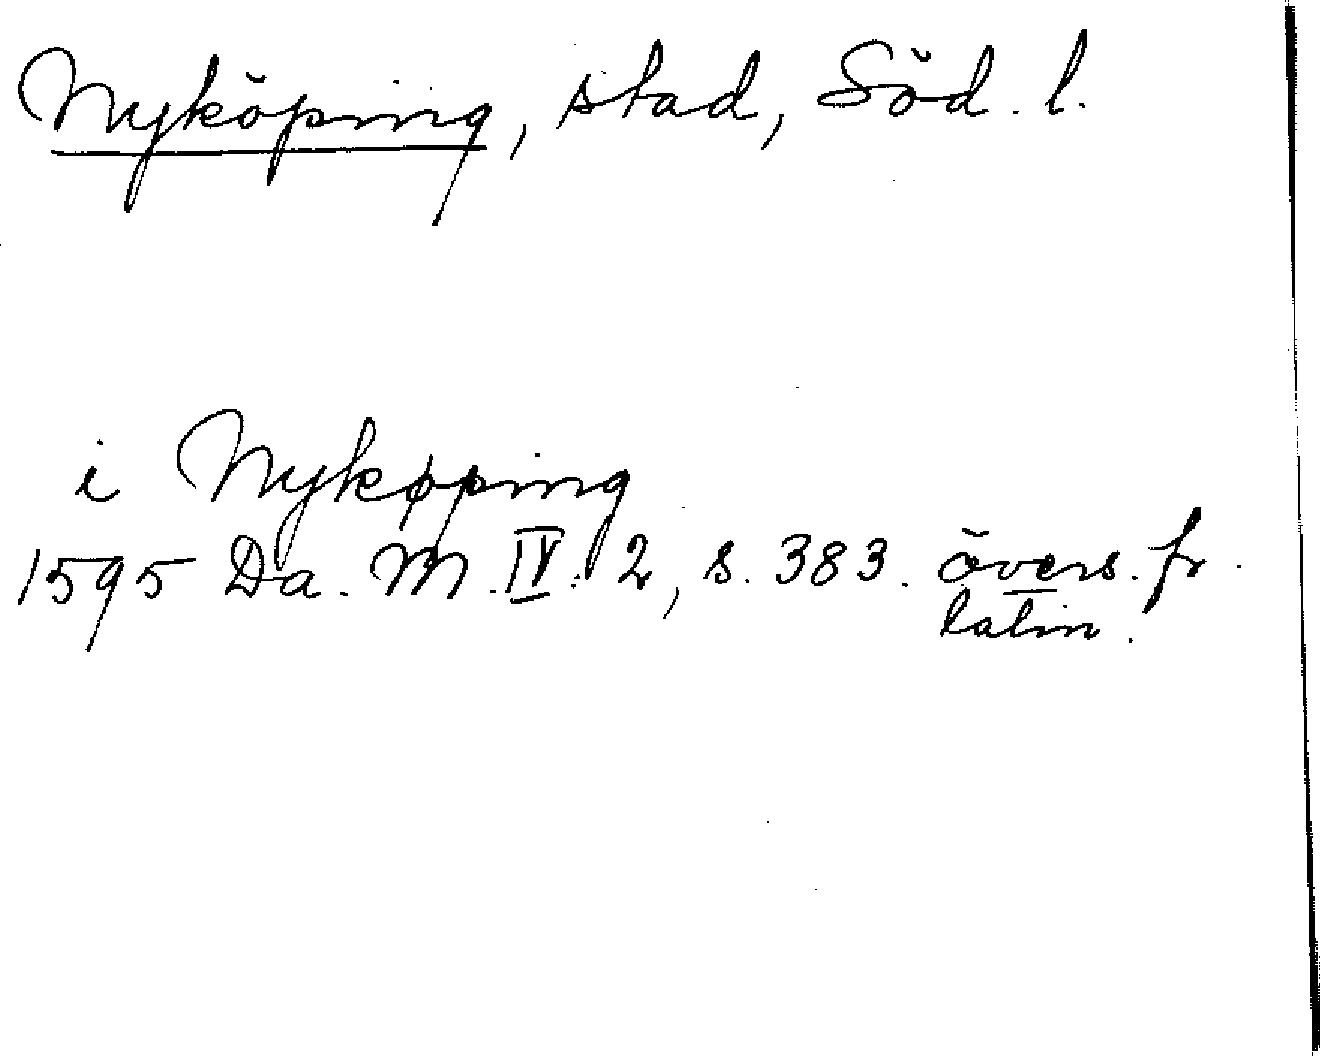 Nyköping, stad, Söd. l.
i Nykøping
1595 Da. M. IV: 2, s. 383. övers. fr.
latin.